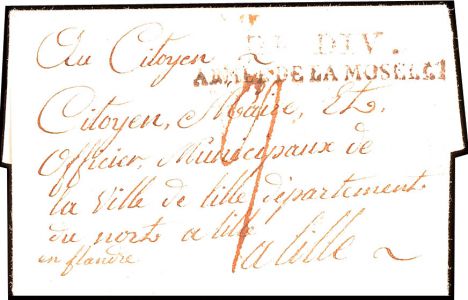 Au Citoyen
DIV.
ARMÉE DE LA MOSELLE
Citoyen, Maire, Et
officier, Municipaux de
la ville de lille departement
du nort a lille
en flandre
a lille